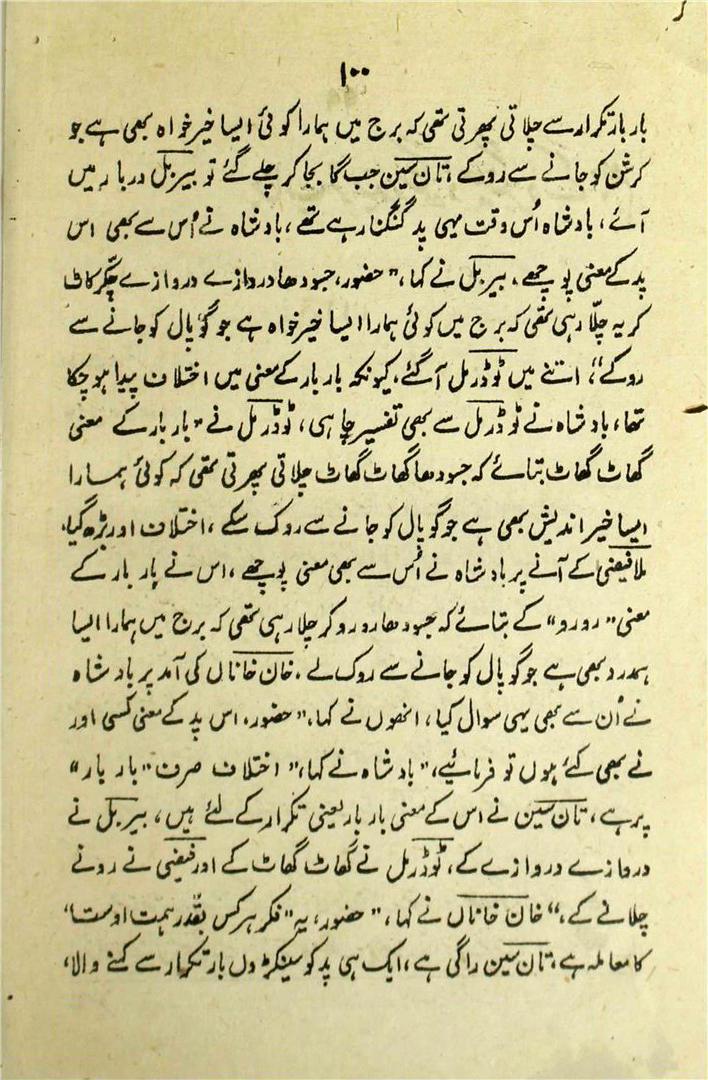 ۱۰۰
بار بار تکرار سے چلاتی پھرتی تھی کہ برج میں ہمارا کوئی ایسا خیر خواہ بھی ہے جو
کرشن کو جانے سے روکے ، تان سین جب گا بجا کر چلے گئے تو بیربل دربار میں
آئے ، بادشاہ اُس وقت یہی پد گنگنا رہے تھے ، بادشاہ نے اُس سے بھی اس
پد کے معنی پوچھے ، بیربل نے کہا ، "حضور، جسودھا دروازے دروازے چکّر کاٹ
کر یہ چلّا رہی تھی کہ برج میں کوئی ہمارا ایسا خیر خواہ ہے جو گوپال کو جانے سے
روکے"، اتنے میں ٹوڈرمل آ گئے، کیونکہ بار بار کے معنی میں اختلاف پیدا ہو چکا
تھا ، بادشاہ نے ٹوڈرمل سے بھی تفسیر چاہی ، ٹوڈرمل نے "بار بار کے معنی
گھاٹ گھاٹ بتائے کہ جسودھا گھاٹ گھاٹ چلاتی پھرتی تھی کہ کوئی ہمارا
ایسا خیر اندیش بھی ہے جو گوپال کو جانے سے روک سکے ، اختلاف اور بڑھ گیا،
ملا فیضی کے آنے پر بادشاہ نے اُس سے بھی معنی پوچھے ، اس نے بار بار کے
معنی "رو رو" کے بتائے کہ جسودھا رو رو کر چلا رہی تھی کہ برج میں ہمارا ایسا
ہمدرد بھی ہے جو گوپال کو جانے سے روک لے ، خان خاناں کی آمد پر بادشاہ
نے اُن سے بھی یہی سوال کیا ، انھوں نے کہا، "حضور، اس پد کے معنی کسی اور
نے بھی کئے ہوں تو فرمائیے، "بادشاہ نے کہا، "اختلاف صرف "بار بار"
پر ہے ، تان سین نے اس کے معنی بار بار یعنی تکرار کے لئے ہیں ، بیربل نے
دروازے دروازے کے ، ٹوڈرمل نے گھاٹ گھاٹ کے اور فیضی نے رونے
چلانے کے، "خان خاناں نے کہا ، "حضور، یہ "فکر ہر کس بقدر ہمت اوست"،
کا معاملہ ہے ، تان سین راگی ہے ، ایک ہی پد کو سینکڑوں بار تکرار سے کہنے والا،